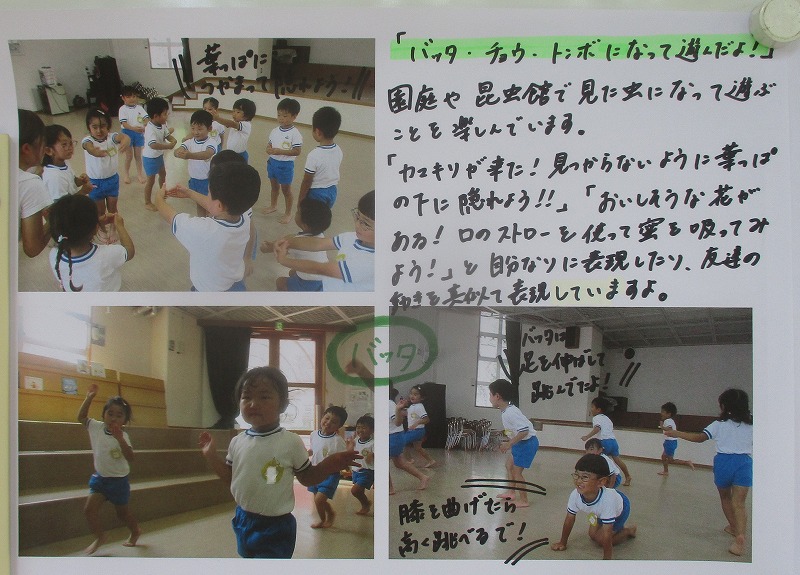 「バッタ・チョウ・トンボになって遊んだよ！」
園庭や昆虫館で見た虫になって遊ぶ
ことを楽しんでいます。
「カマキリが来た！見つからないように葉っぱ
の下に隠れよう！！」「おいしそうな花が
ある！口のストローを使って蜜を吸ってみ
よう！」と自分なりに表現したり、友達の
動きを真似て表現していますよ。
葉っぱに
つかまって隠れよう！！
バッタ
バッタは
足を伸ばして
跳んでたよ！
膝を曲げたら
高く跳べるで！